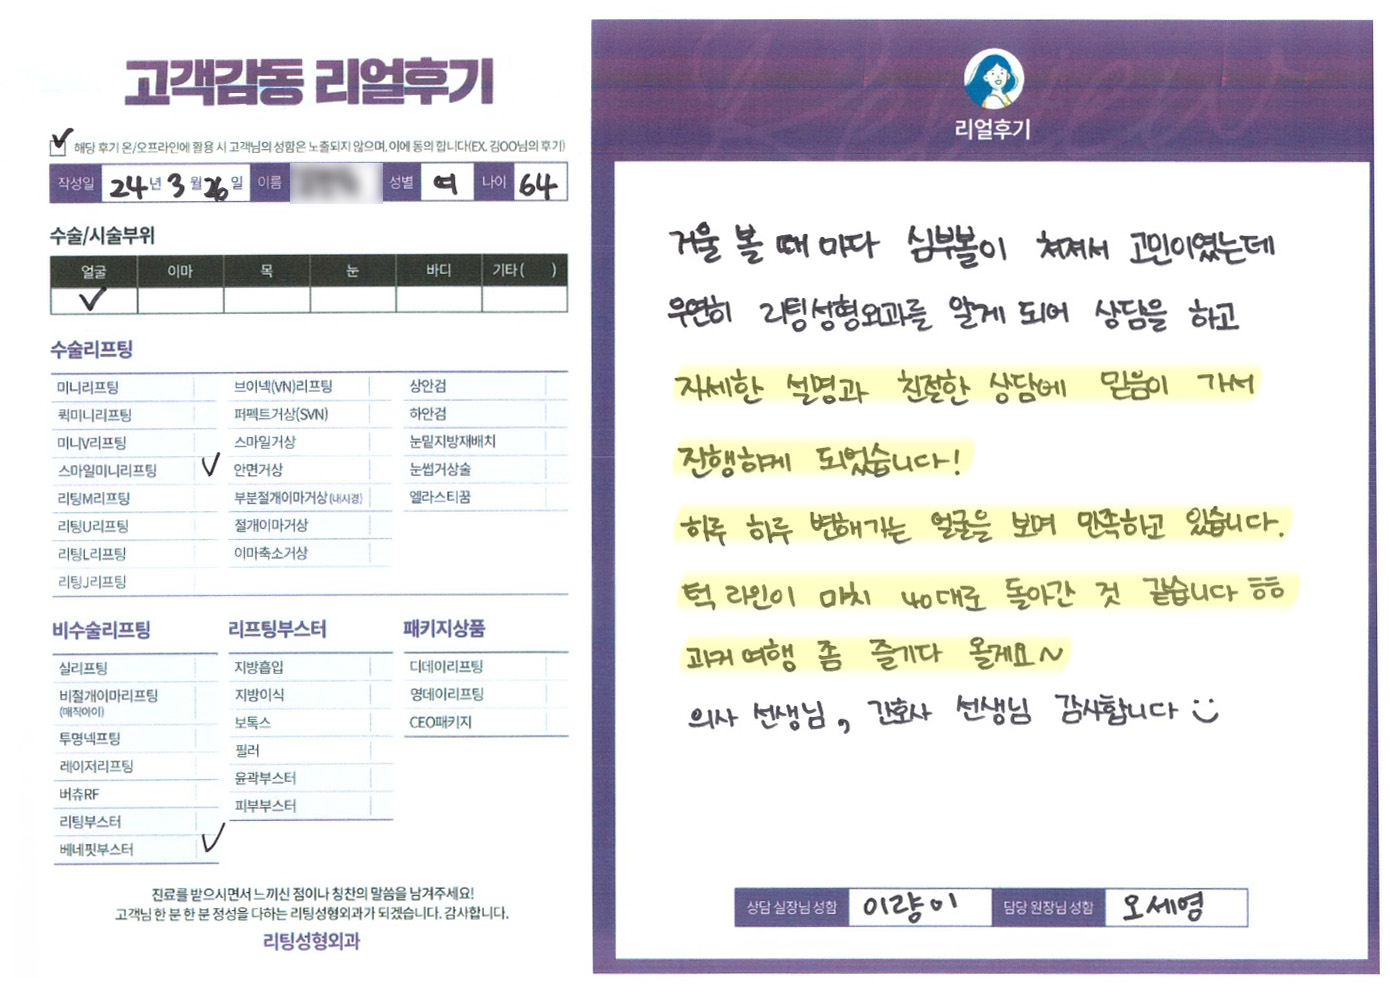 고객감동 리얼후기
해당 후기 온/오프라인에 활용 시 고객님의 성함은 노출되지 않으며, 이에 동의 합니다(EX. 김OO님의 후기)
작성일 24년 3월 26일 이름 성별 여 나이 64
수술/시술부위
얼굴 이마 목 눈 바디 기타 ( )
수술리프팅
미니리프팅 브이넥(VN)리프팅 상안검
퀵미니리프팅 퍼펙트거상(SVN) 하안검
미니V리프팅 스마일거상 눈밑지방재배치
스마일미니리프팅 안면거상 눈썹거상술
리팅M리프팅 부분절개이마거상(내시경) 엘라스티꿈
리팅U리프팅 절개이마거상
리팅L리프팅 이마축소거상
리팅J리프팅
비수술리프팅 리프팅부스터 패키지상품
실리프팅 지방흡입 디데이리프팅
비절개이마리프팅 지방이식 영데이리프팅
(매직아이) 보톡스 CEO패키지
투명넥프팅 필러
레이저리프팅 윤곽부스터
버츄RF 피부부스터
리팅부스터
베네핏부스터
진료를 받으시면서 느끼신 점이나 칭찬의 말씀을 남겨주세요!
고객님 한 분 한 분 정성을 다하는 리팅성형외과가 되겠습니다. 감사합니다.
리팅성형외과
리얼후기
거울 볼 때 마다 심부볼이 처져서 고민이였는데
우연히 리팅성형외과를 알게 되어 상담을 하고
자세한 설명과 친절한 상담에 믿음이 가서
진행하게 되었습니다!
하루 하루 변해가는 얼굴을 보며 만족하고 있습니다.
턱 라인이 마치 40대로 돌아간 것 같습니다 ㅎㅎ
과거 여행 좀 즐기다 올게요~
의사 선생님, 간호사 선생님 감사합니다
상담 실장님 성함 이량이 담당 원장님 성함 오세영